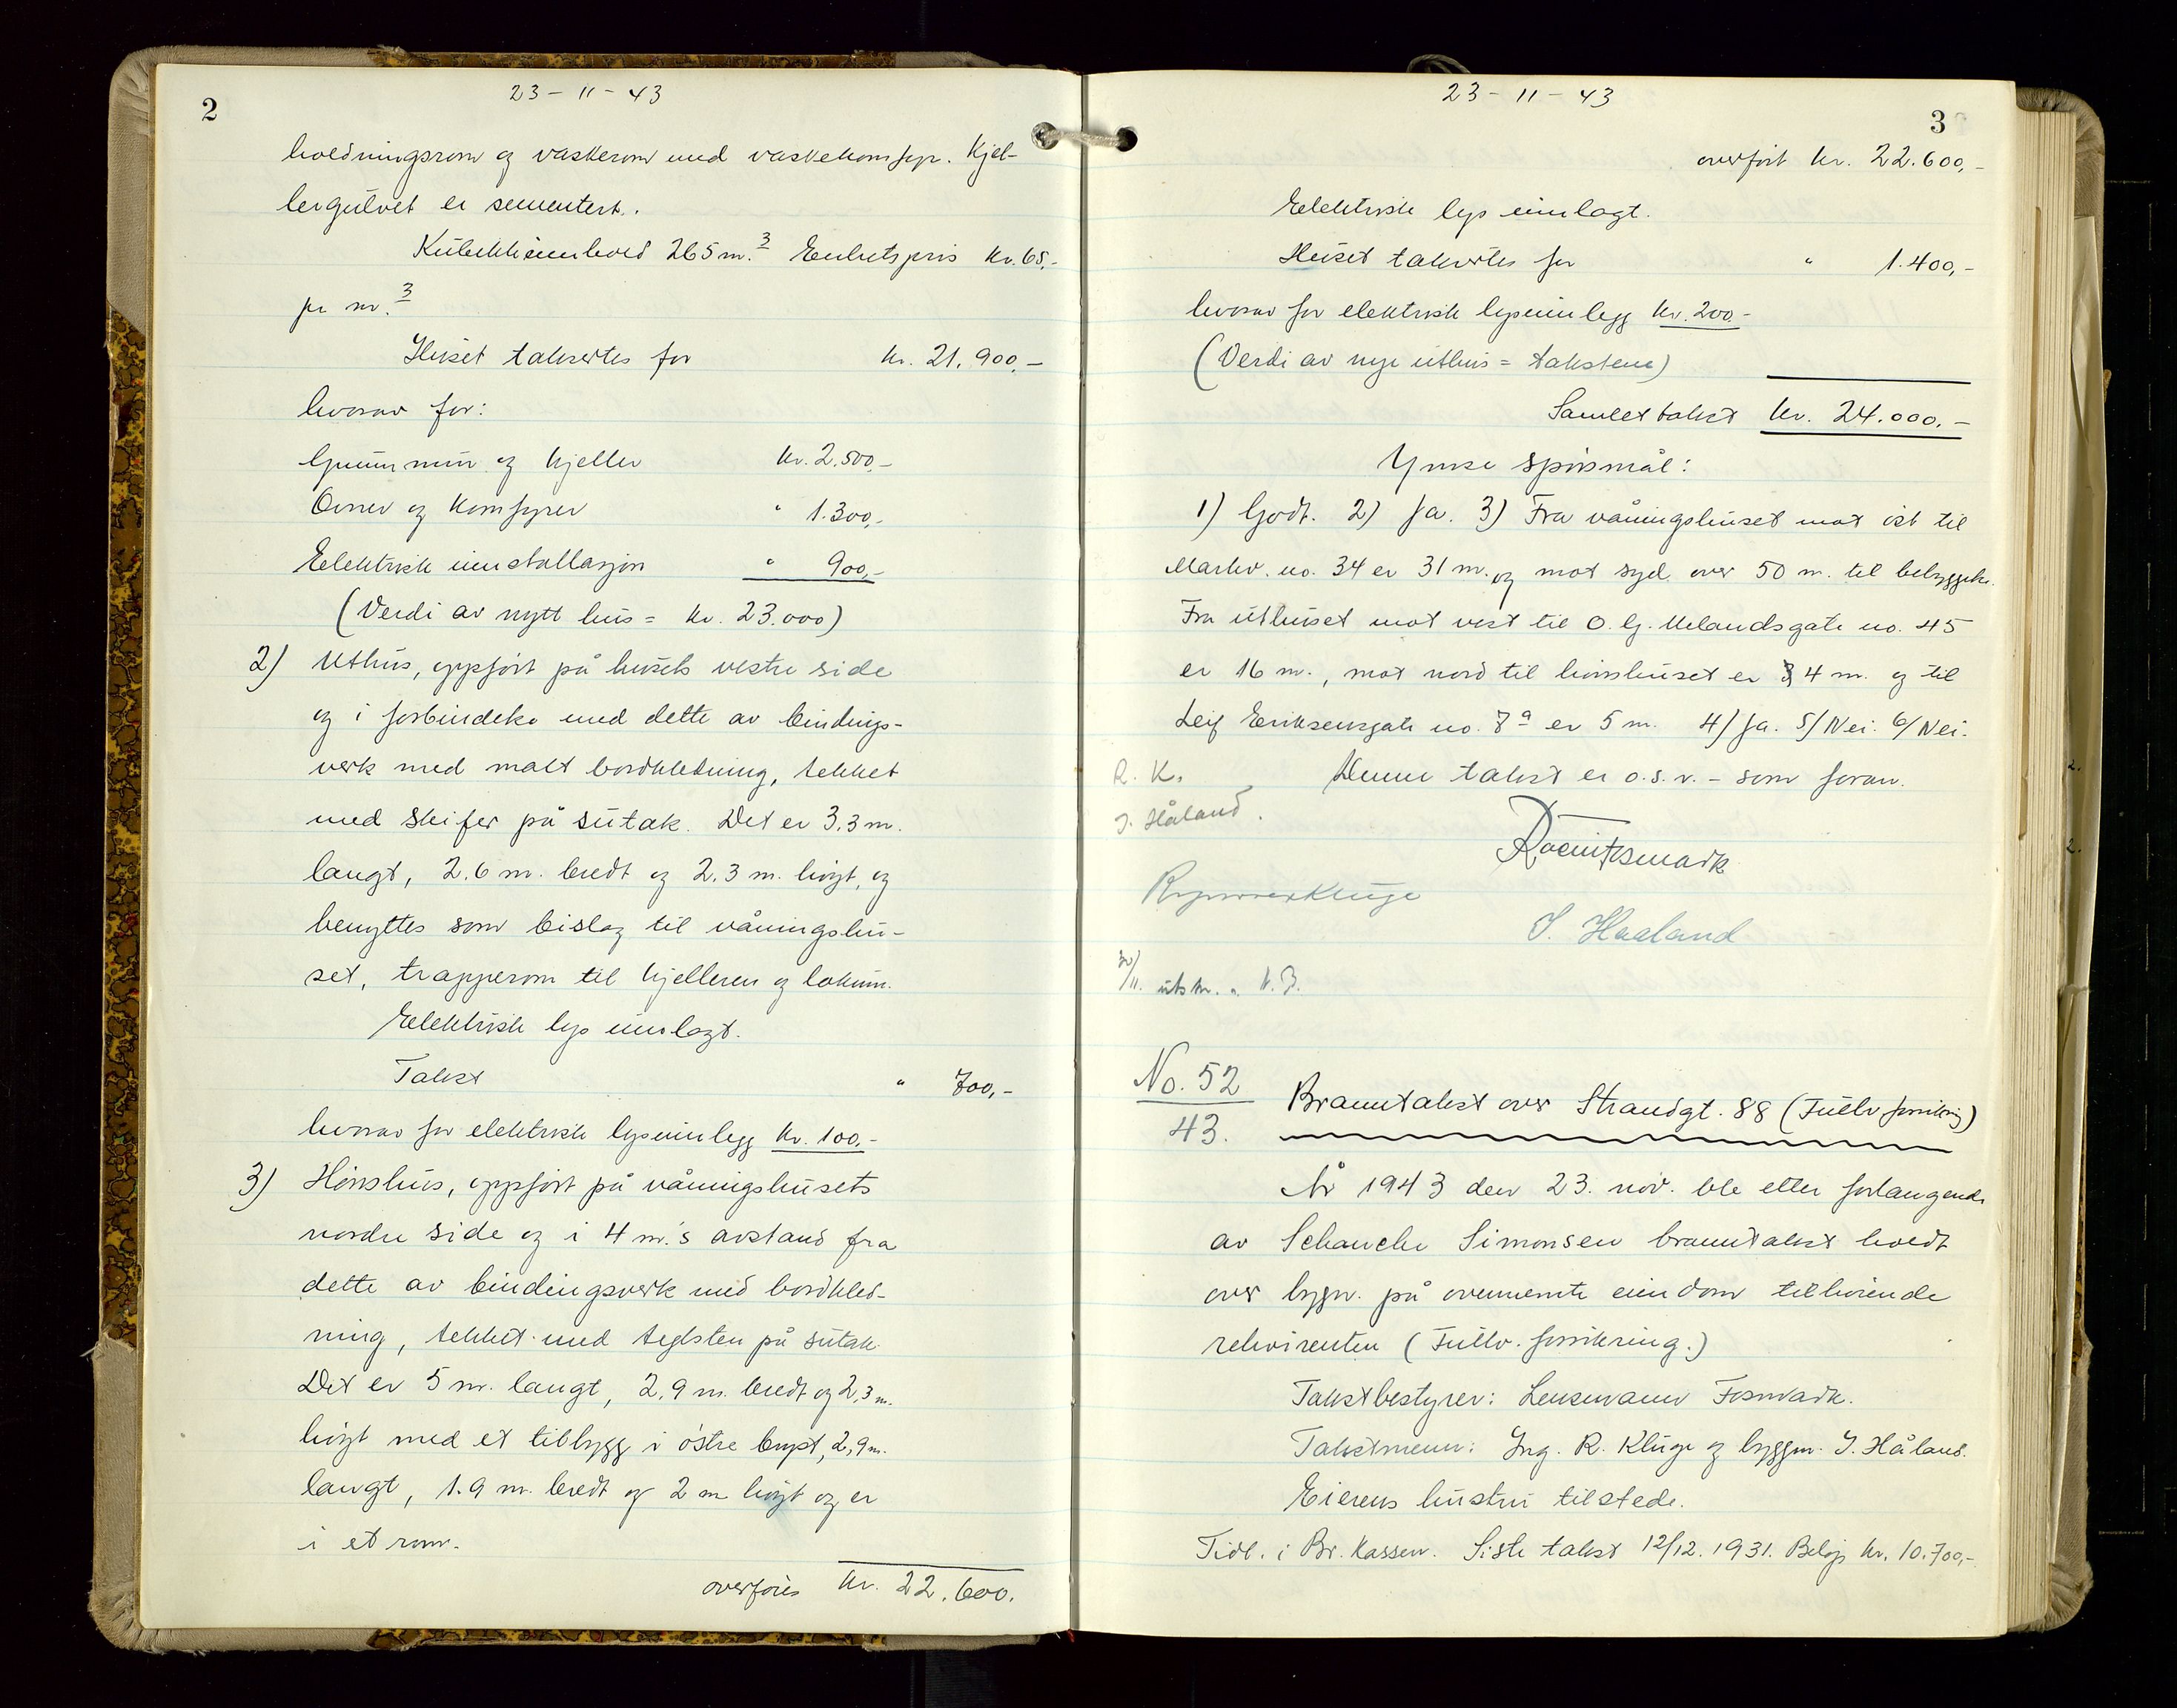 2
23 - 11 - 43
holdningsrom og vaskerom med vaskekomfyr. Kjel-
lergulvet er sementert.
Kubikkinnhold 265 m.3 Enhetspris kr. 65,-
pr m.3
Huset takseres for kr. 21.900,-
hvorav for:
Grunnmur og kjeller kr. 2.500,-
Ovner og komfyrer " 1.300,-
Elektrisk innstallasjon " 900,-
(Verdi av nytt hus = kr. 23.000)
2) Uthus, oppført på husets vestre side
og i forbindelse med dette av bindings-
verk med malt bordkledning, tekket
med skifer på sutak. Det er 3,3 m.
langt, 2,6 m. bredt og 2,3 m. høgt, og
benyttes som bislag til våningshu-
set, trapperom til kjelleren og lokum.
Elektrisk lys innlagt.
Takst " 700,-
hvorav for elektrisk lysinnlegg kr. 100,-
3) Hønshus, oppført på våningshusets
nordre side og i 4 m.'s avstand fra
dette av bindingsverk med bordkled-
ning, tekket med teglsten på sutak.
Det er 5 m. langt, 2,9 m. bredt og 2,3 m.
høgt med et tilbygg i østre byst, 2,9 m.
langt, 1.9 m. bredt og 2 m høgt og er
i et rom.
overføres kr. 22.600.
23 - 11 - 43
3
overført kr. 22.600,-
Elektrisk lys innlagt.
Huset takseres for " 1.400,-
hvorav for elektrisk lysinnlegg kr. 200.-
(Verdi av nye uthus = takstene)
Samlet takst kr. 24.000.-
Ymse spørsmål:
1) Godt. 2) Ja. 3) Fra våningshuset mot øst til
Markv. no. 34 er 31 m. og mot syd over 50 m. til bebyggelse.
Fra uthuset mot vest til O. G. Melandsgate no. 45
er 16 m., mot nord til hønshuset er 4 m. og til
Leif Eriksensgate no. 7a er 5 m. 4) Ja. 5/ Nei. 6/ Nei.
R. K. Denne takst er o.s.v. - som foran.
J. Håland.
J. Haaland
30/11. utskr. " K. J.
No. 52
43.
Branntakst over Strandgt. 88 (Fullv forsikring)
År 1943 den 23. nov. ble etter forlangende
av Schanche Simonsen branntakst holdt
over bygn. på ovennemte eiendom tilhørende
rekvirenten (Fullv. forsikring.)
Takstbestyrer: Lensmann Fosmark.
Takstmenn: Ing. R. Kluge og byggm. J. Håland.
Eierens hustru tilstede.
Tidl. i Br. Kassen. Siste takst 12/12. 1931. Beløp kr. 10.700,-